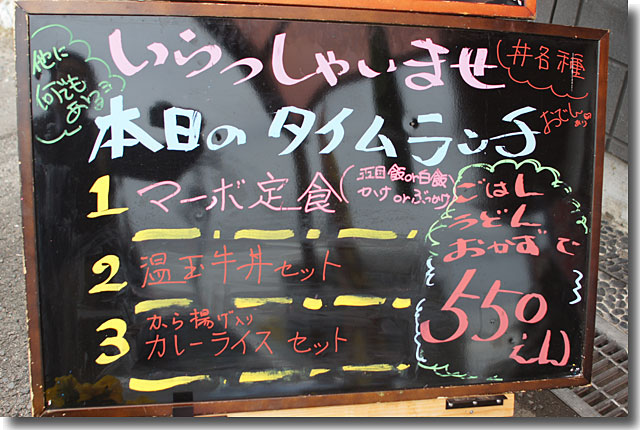 いらっしゃいませ
他に
何でも
あるヨ
#各種
おでん
あり
本日の タイムランチ
1 マーボ定食(混ぜ飯or白飯
かけ or ぶっかけ)
2 温玉牛丼セット
3 から揚げ入り
カレーライス セット
ごはん
うどん
おかずで
550
えん